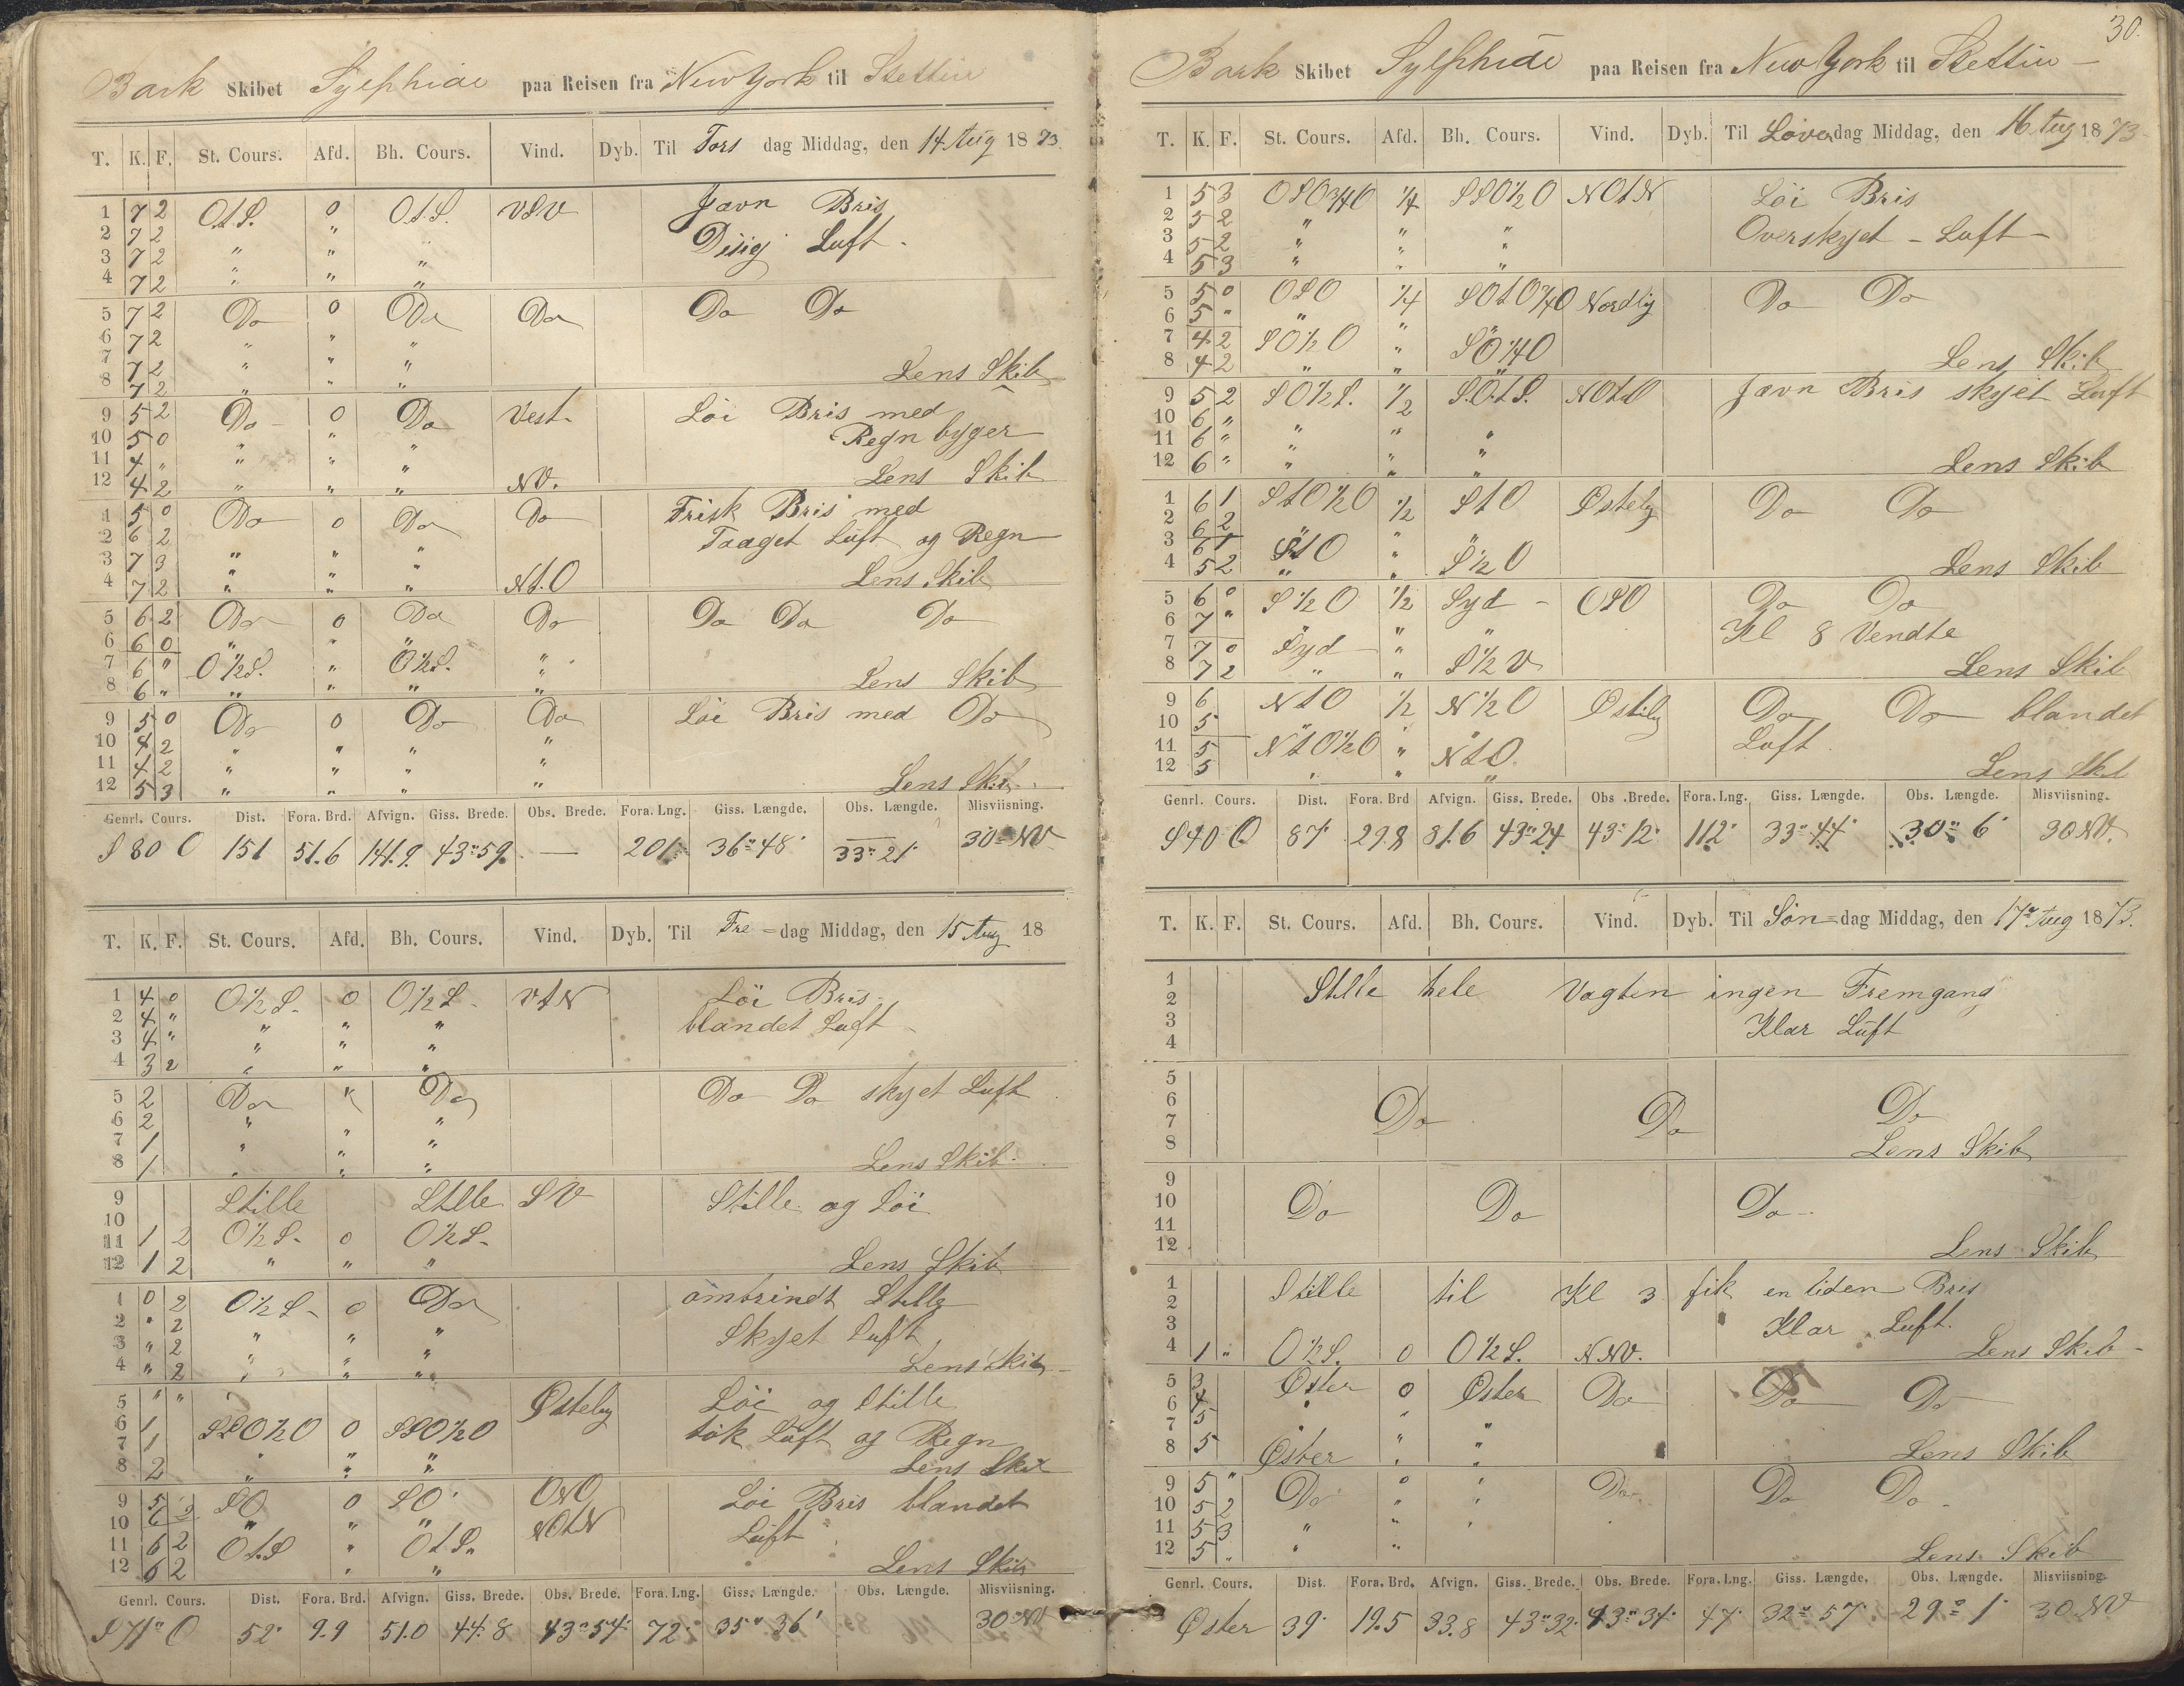 Bark Skibet Sylphide paa Reisen fra New York til Stettin
T. K. F. St. Cours. Afd. Bh. Cours. Vind. Dyb. Til Tors dag Middag, den 14 Aug 1873.
1 7 2 O.t.S. 0 O.t.S. VSV Jævn Bris
2 7 2 " Disig Luft.
3 7 2 " " "
4 7 2 " " "
5 7 2 Do 0 Do Do Do Do
6 7 2 " " "
7 7 2 " " "
8 7 2 " " " Lens Skib
9 5 2 Do 0 Do Vest. Löi Bris med
10 5 0 " " " Regn byger
11 4 " " " "
12 4 2 " " " NV. Lens Skib
1 5 0 Do 0 Do Do Frisk Bris med
2 6 2 Taaget Luft og Regn
3 7 3 " " "
4 7 2 " " " Nt.O Lens Skib
5 6 2 Do 0 Do Do Do Do Do
6 6 0 " " "
7 6 " O½S. " O½S. "
8 6 " " " " " Lens Skib
9 5 0 Do 0 Do Do Löi Bris med Do
10 4 2 " " " "
11 4 2 " " " "
12 5 3 " " " Lens Skib.
Genrl. Cours. Dist. Fora. Brd. Afvign. Giss. Brede. Obs. Brede. Fora. Lng. Giss. Længde. Obs. Længde. Misviisning.
S 80 O 151 51.6 141.9 43°59. — 201' 36°48' 33°21' 30° NV
T. K. F. St. Cours. Afd. Bh. Cours. Vind. Dyb. Til Fre=dag Middag, den 15 Aug 18
1 4 0 O½S. 0 O½S. VtN Löi Bris.
2 4 " " " " blandet Luft
3 4 " " " "
4 3 2 " " "
5 2 Do " Do Do Do skyet Luft
6 2 " " "
7 1 " " "
8 1 " " " Lens Skib.
9 Stille Stille SV Stille og Löi
10
11 1 2 O½S. 0 O½S.
12 1 2 " " " Lens Skib
1 0 2 O½S. 0 Do omtrindt Stille
2 " 2 " " " Skyet Luft
3 " 2 " " "
4 " 2 " " " Lens Skib
5 " " Østely Löi og Stille
6 1 SSO½O 0 SSO½O tök Luft og Regn
7 1 " " "
8 2 " " " Lens Skib
9 5 2 SO 0 SO ONO Löi Bris blandet
10 6 2 " " " NOtN Luft
11 6 2 OtS " OtS.
12 6 2 " " Lens Skib
Genrl. Cours. Dist. Fora. Brd. Afvign. Giss. Brede. Obs. Brede. Fora. Lng. Giss. Længde. Obs. Længde. Misviisning.
S 71° O 52' 9.9 51.0 44°8 43°54' 72' 35°36' 30° NV
30.
Bark Skibet Sylphide paa Reisen fra New York til Stettin
T. K. F. St. Cours. Afd. Bh. Cours. Vind. Dyb. Til Löverdag Middag, den 16. Aug 1873
1 5 3 OSO¾O ¼ SSO½O NOtN Löi Bris
2 5 2 " " " Overskyet Luft
3 5 2 " " "
4 5 3 " " "
5 5 0 OSO ¼ SOtO¾O Nordlig Do Do
6 5 " " "
7 4 2 SO½O " SO¼O
8 4 2 " " " Lens Skib
9 5 2 SO½S. ½ S.O.t.S. NOtO Jævn Bris skyet Luft
10 6 " " " "
11 6 " " " "
12 6 " " " " Lens Skib
1 6 1 StO½O ½ StO Østely Do Do
2 6 2 " " "
3 6 1 StO "
4 5 2 " " S½O Lens Skib
5 6 0 S½O ½ Syd OSO Do Do
6 7 " " " " Kl 8 Vendte
7 7 0 Syd "
8 7 2 " " S½V Lens Skib
9 6 NtO ½ N½O Østely Do Do blandet
10 5 " " " Luft
11 5 NtO½O " NtO.
12 5 " " " Lens Skib
Genrl. Cours. Dist. Fora. Brd Afvign. Giss. Brede. Obs. Brede. Fora. Lng. Giss. Længde. Obs. Længde. Misviisning.
S 40 O 87' 29.8 81.6 43°24 43°12' 112' 33°44' 30°6' 30 NV.
T. K. F. St. Cours. Afd. Bh. Cours. Vind. Dyb. Til Søn=dag Middag, den 17 Aug 1873.
1
2 Stille hele Vagten ingen Fremgang
3 Klar Luft
4
5
6
7 Do Do Do
8 Lens Skib
9
10 Do Do Do
11
12 Lens Skib
1 Stille til Kl 3 fik en liden Bris
2
3 Klar Luft.
4 1 " O½S. 0 O½S. NNV. Lens Skib
5 3 Øster 0 Øster Do Do Do
6 4 " " "
7 5 " "
8 5 Øster " " Lens Skib
9 5 " Do 0 " Do Do Do
10 5 2 " "
11 5 3 " " "
12 5 " " " Lens Skib
Genrl. Cours. Dist. Fora. Brd. Afvign. Giss. Brede. Obs. Brede. Fora. Lng. Giss. Længde. Obs. Længde. Misviisning.
Øster 39' 19.5 33.8 43°32' 43°34' 47' 32°57' 29°1' 30 NV